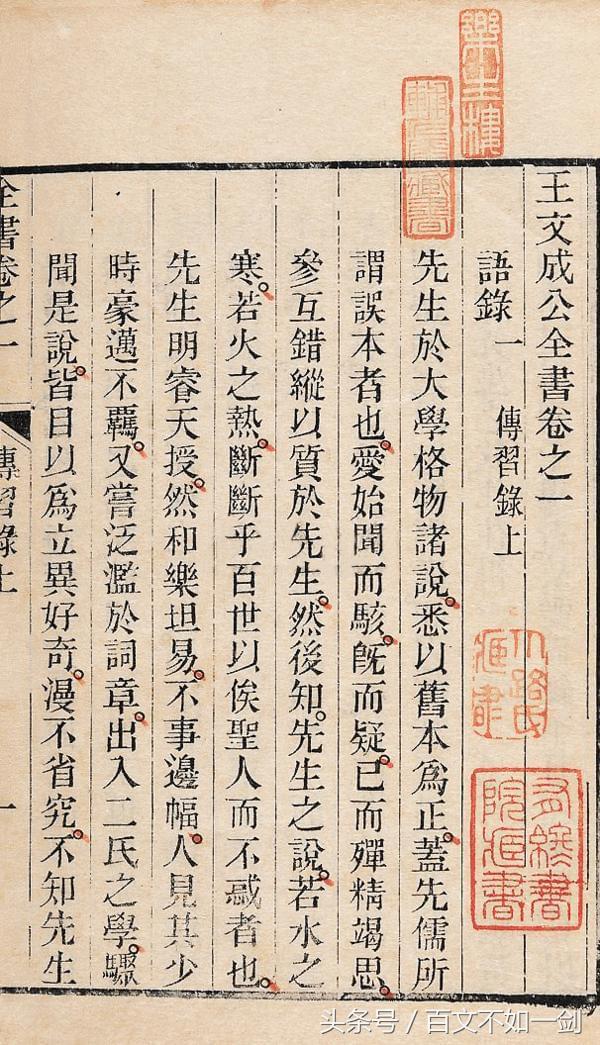 王文成公全書卷之一
語錄一 傳習錄上
先生於大學格物諸說。悉以舊本爲正。蓋先儒所
謂誤本者也。愛始聞而駭。旣而疑。已而殫精竭思。
參互錯縱以質於先生。然後知。先生之說。若水之
寒。若火之熱。斷斷乎百世以俟聖人而不惑者也。
先生明睿天授。然和樂坦易。不事邊幅。人見其少
時豪邁不羈。又嘗泛濫於詞章。出入二氏之學。驟
聞是說。皆目以爲立異好奇。漫不省究。不知先生
全書卷之一 傳習錄上 一
头条号 / 百文不如一剑